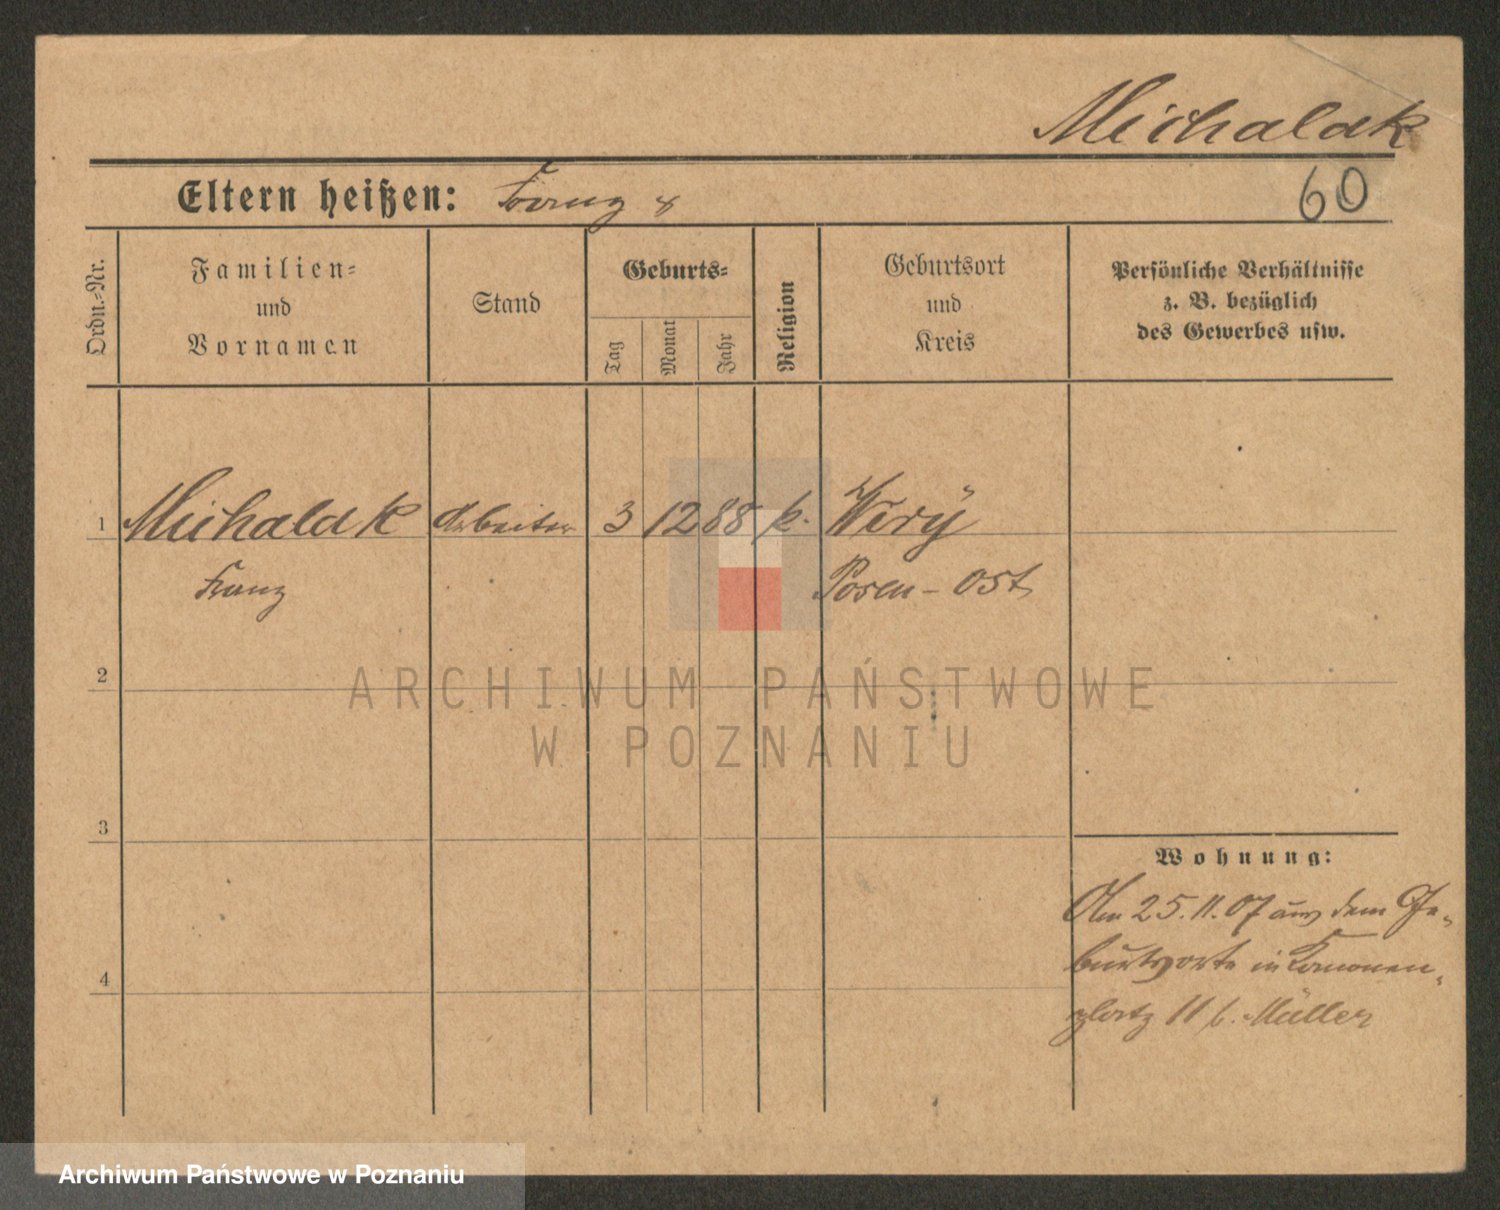 Michalak
Eltern heißen: Franz
60
Ordn.-Nr.
Familien-
und
Vornamen
Stand
Geburts-
Tag
Monat
Jahr
Religion
Geburtsort
und
Kreis
Persönliche Verhältnisse
z. B. bezüglich
des Gewerbes usw.
1 Michalak Arbeiter 3 12 88 k. Wery
Franz Posen-Ost
2
3
4
Wohnung:
Am 25.11.07 aus dem Ge-
burtsorte in Kanonen-
platz 11 b. Müller
ARCHIWUM PAŃSTWOWE
W POZNANIU
Archiwum Państwowe w Poznaniu